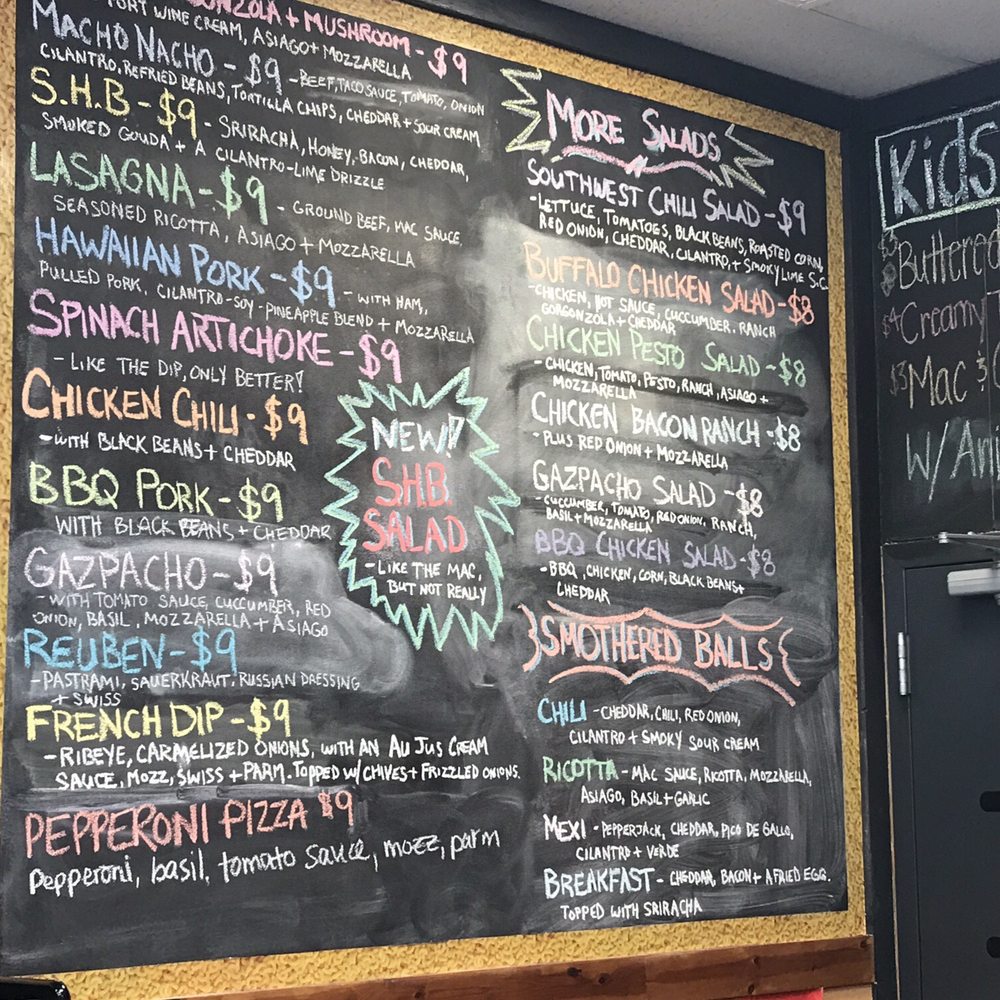 GONZOLA + MUSHROOM - $9
PORT WINE CREAM, ASIAGO + MOZZARELLA
MACHO NACHO - $9 - BEEF, TACO SAUCE, TOMATO, ONION
CILANTRO, REFRIED BEANS, TORTILLA CHIPS, CHEDDAR + SOUR CREAM
S.H.B - $9 - SRIRACHA, HONEY, BACON, CHEDDAR,
SMOKED GOUDA + A CILANTRO-LIME DRIZZLE
LASAGNA - $9 - GROUND BEEF, MAC SAUCE,
SEASONED RICOTTA, ASIAGO + MOZZARELLA
HAWAIIAN PORK - $9 - WITH HAM,
PULLED PORK, CILANTRO-SOY-PINEAPPLE BLEND + MOZZARELLA
SPINACH ARTICHOKE - $9
- LIKE THE DIP, ONLY BETTER!
CHICKEN CHILI - $9
- WITH BLACK BEANS + CHEDDAR
BBQ PORK - $9
WITH BLACK BEANS + CHEDDAR
GAZPACHO - $9
- WITH TOMATO SAUCE, CUCCUMBER, RED
ONION, BASIL, MOZZARELLA + ASIAGO
REUBEN - $9
- PASTRAMI, SAUERKRAUT, RUSSIAN DRESSING
+ SWISS
FRENCH DIP - $9
- RIBEYE, CARMELIZED ONIONS, WITH AN AU JUS CREAM
SAUCE, MOZZ, SWISS + PARM. TOPPED W/ CHIVES + FRIZZLED ONIONS.
PEPPERONI PIZZA $9
Pepperoni, basil, tomato sauce, mozz, parm
NEW!
S.H.B.
SALAD
- LIKE THE MAC,
BUT NOT REALLY
MORE SALADS
SOUTHWEST CHILI SALAD - $9
- LETTUCE, TOMATOES, BLACK BEANS, ROASTED CORN,
RED ONION, CHEDDAR, CILANTRO, + SMOKY LIME S.C.
BUFFALO CHICKEN SALAD - $8
- CHICKEN, HOT SAUCE, CUCCUMBER, RANCH
GORGONZOLA + CHEDDAR
CHICKEN PESTO SALAD - $8
- CHICKEN, TOMATO, PESTO, RANCH, ASIAGO +
MOZZARELLA
CHICKEN BACON RANCH - $8
- PLUS RED ONION + MOZZARELLA
GAZPACHO SALAD - $8
- CUCCUMBER, TOMATO, RED ONION, RANCH,
BASIL + MOZZARELLA
BBQ CHICKEN SALAD - $8
- BBQ, CHICKEN, CORN, BLACK BEANS +
CHEDDAR
SMOTHERED BALLS
CHILI - CHEDDAR, CHILI, RED ONION,
CILANTRO + SMOKY SOUR CREAM
RICOTTA - MAC SAUCE, RICOTTA, MOZZARELLA,
ASIAGO, BASIL + GARLIC
MEXI - PEPPERJACK, CHEDDAR, PICO DE GALLO,
CILANTRO + VERDE
BREAKFAST - CHEDDAR, BACON + A FRIED EGG.
TOPPED WITH SRIRACHA
Kids
Buttered
$4 Creamy
$3 Mac &
W/